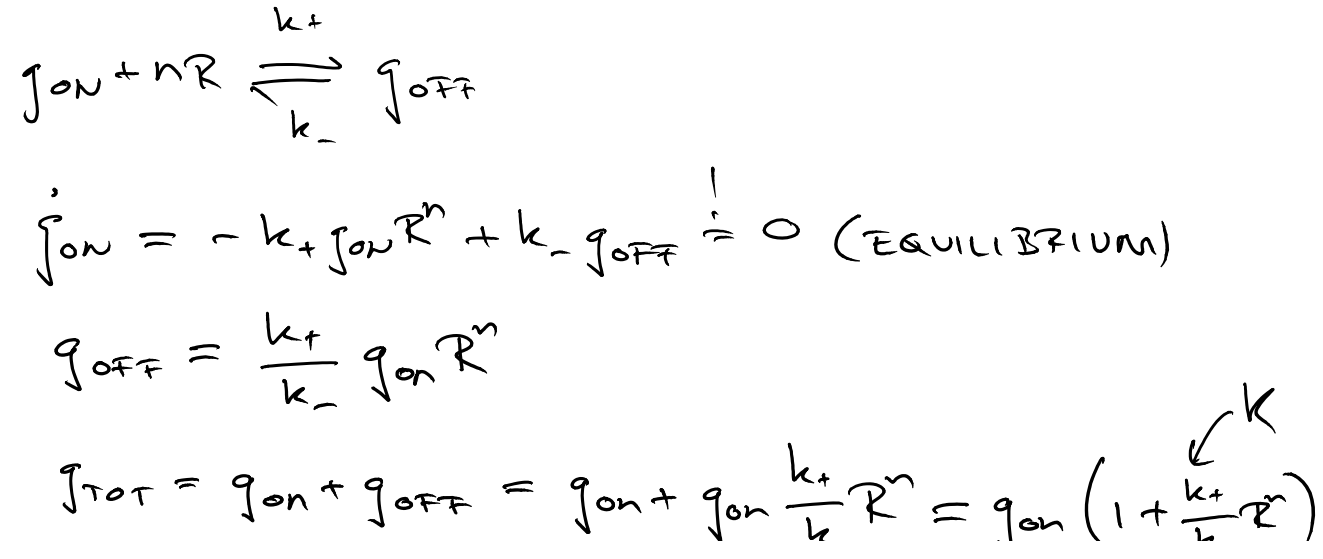 k+
g_ON + nR ⇌ g_OFF
k_-
ġ_ON = - k_+ g_ON R^n + k_- g_OFF =! 0 (EQUILIBRIUM)
g_OFF = k_+/k_- g_on R^n
K
g_TOT = g_on + g_OFF = g_on + g_on k_+/k R^n = g_on (1 + k_+/k R^n)